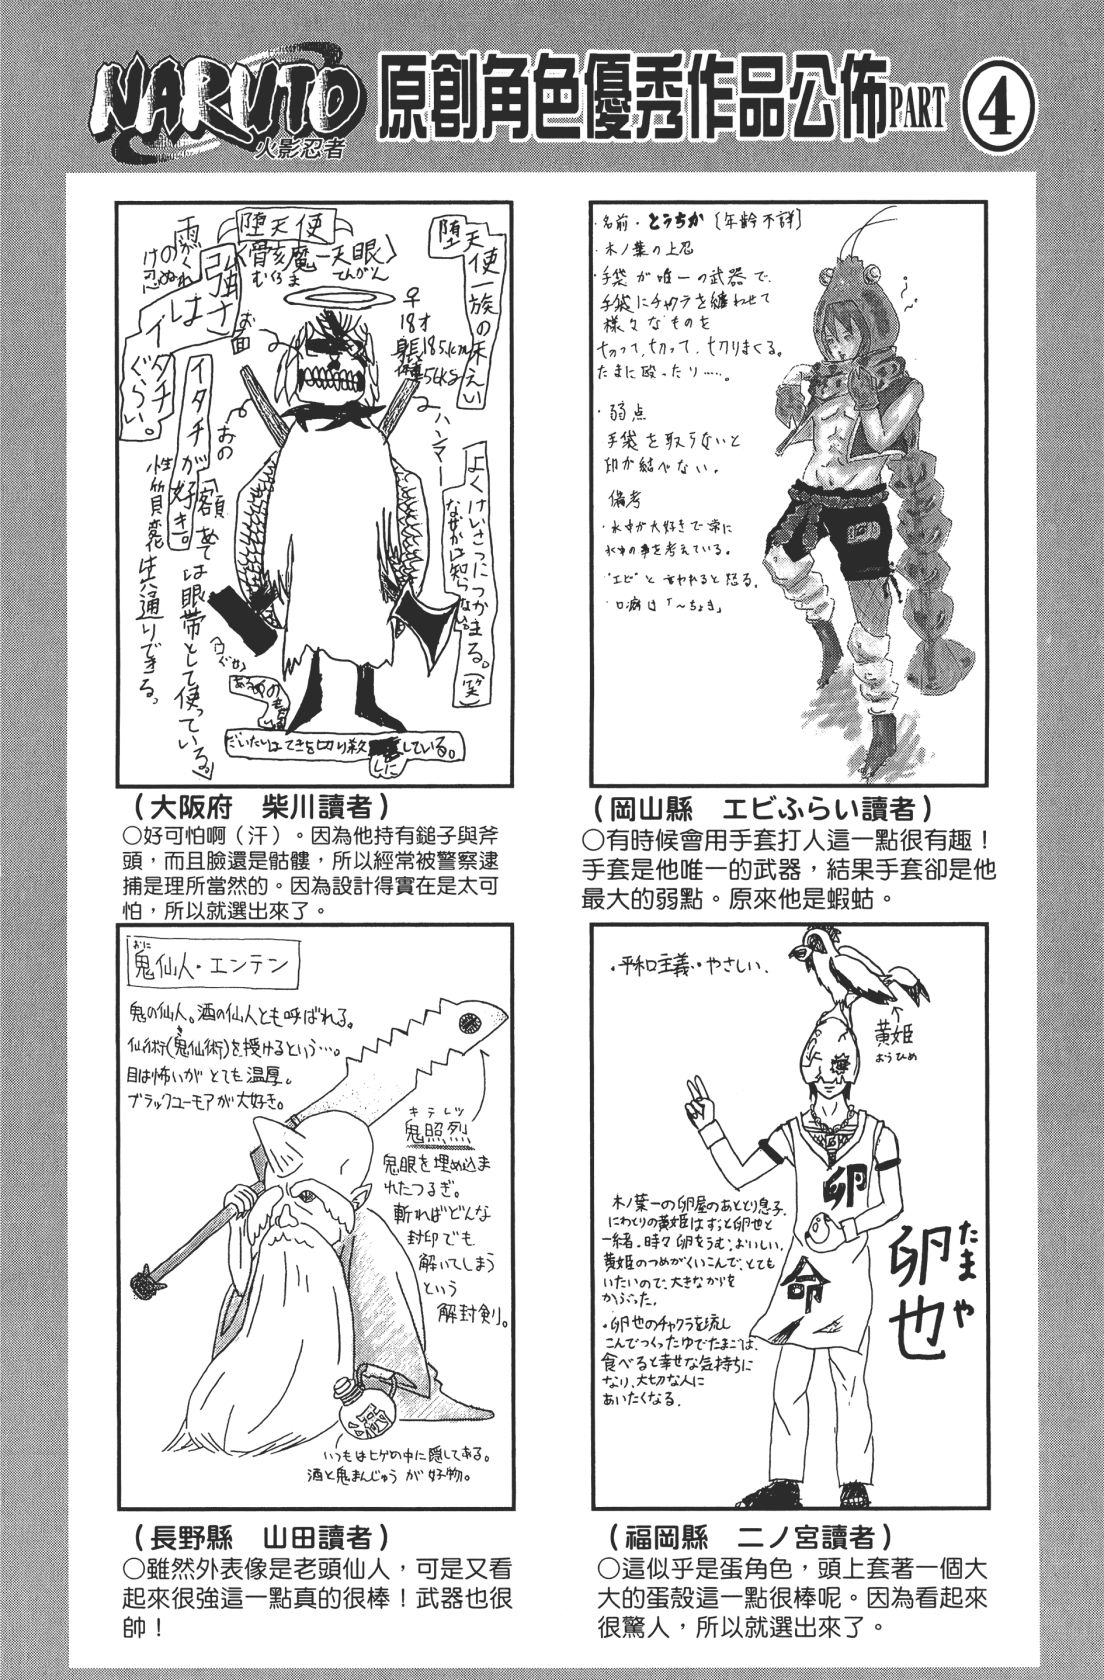 NARUTO
火影忍者
原創角色優秀作品公佈PART ④
堕天使
骸魔一天眼
むくろま てんがん
雨がくれ
のぬ
け忍
強さは
イタチ
ぐらい。
お面
♀
18才
身長185.1cm
体重56kg
堕天使一族の末えい
ハンマー
イタチが好き。
おの
額あては眼帯として使っている。
性質変化共通りできる。
よくけいさつにつかまる。(笑)
なぜかは知らない
だいたいはてきを切り殺
している。
(大阪府 柴川讀者)
○好可怕啊(汗)。因為他持有鎚子與斧
頭,而且臉還是骷髏,所以經常被警察逮
捕是理所當然的。因為設計得實在是太可
怕,所以就選出來了。
・名前・とうちか [年齢不詳]
・木ノ葉の上忍
・手袋が唯一の武器で、
手袋にチャクラを纏わせて
様々なものを
切って、切って、切りまくる。
たまに殴ったり……。
・弱点
手袋を取らないと
印が結べない。
備考
・水中が大好きで常に
水中の事を考えている。
・"エビ"と言われると怒る。
・口癖は「〜ちょき」
(岡山縣 エビふらい讀者)
○有時候會用手套打人這一點很有趣!
手套是他唯一的武器,結果手套卻是他
最大的弱點。原來他是蝦蛄。
おに
鬼仙人・エンテン
鬼の仙人。酒の仙人とも呼ばれる。
仙術(鬼仙術)を授けるという…。
目は怖いがとても温厚。
ブラックユーモアが大好き。
キテレツ
鬼照烈
鬼眼を埋め込ま
れたつるぎ。
斬ればどんな
封印でも
解いてしまう
という
解封剣。
いつもはヒゲの中に隠してある。
酒と鬼まんじゅうが好物。
(長野縣 山田讀者)
○雖然外表像是老頭仙人,可是又看
起來很強這一點真的很棒!武器也很
帥!
・平和主義・やさしい.
黄姫
おうひめ
卵
命
たまや
卵也
木ノ葉一の卵屋のあととり息子.
にわとりの黄姫はずっと卵也と
一緒.時々卵をうむ.おいしい.
黄姫のつめがくいこんで、とても
いたいので、大きなからを
かぶった.
・卵也のチャクラを流し
こんでつくったゆでたまごは、
食べると幸せな気持ちに
なり、大切な人に
あいたくなる.
(福岡縣 二ノ宮讀者)
○這似乎是蛋角色,頭上套著一個大
大的蛋殼這一點很棒呢。因為看起來
很驚人,所以就選出來了。